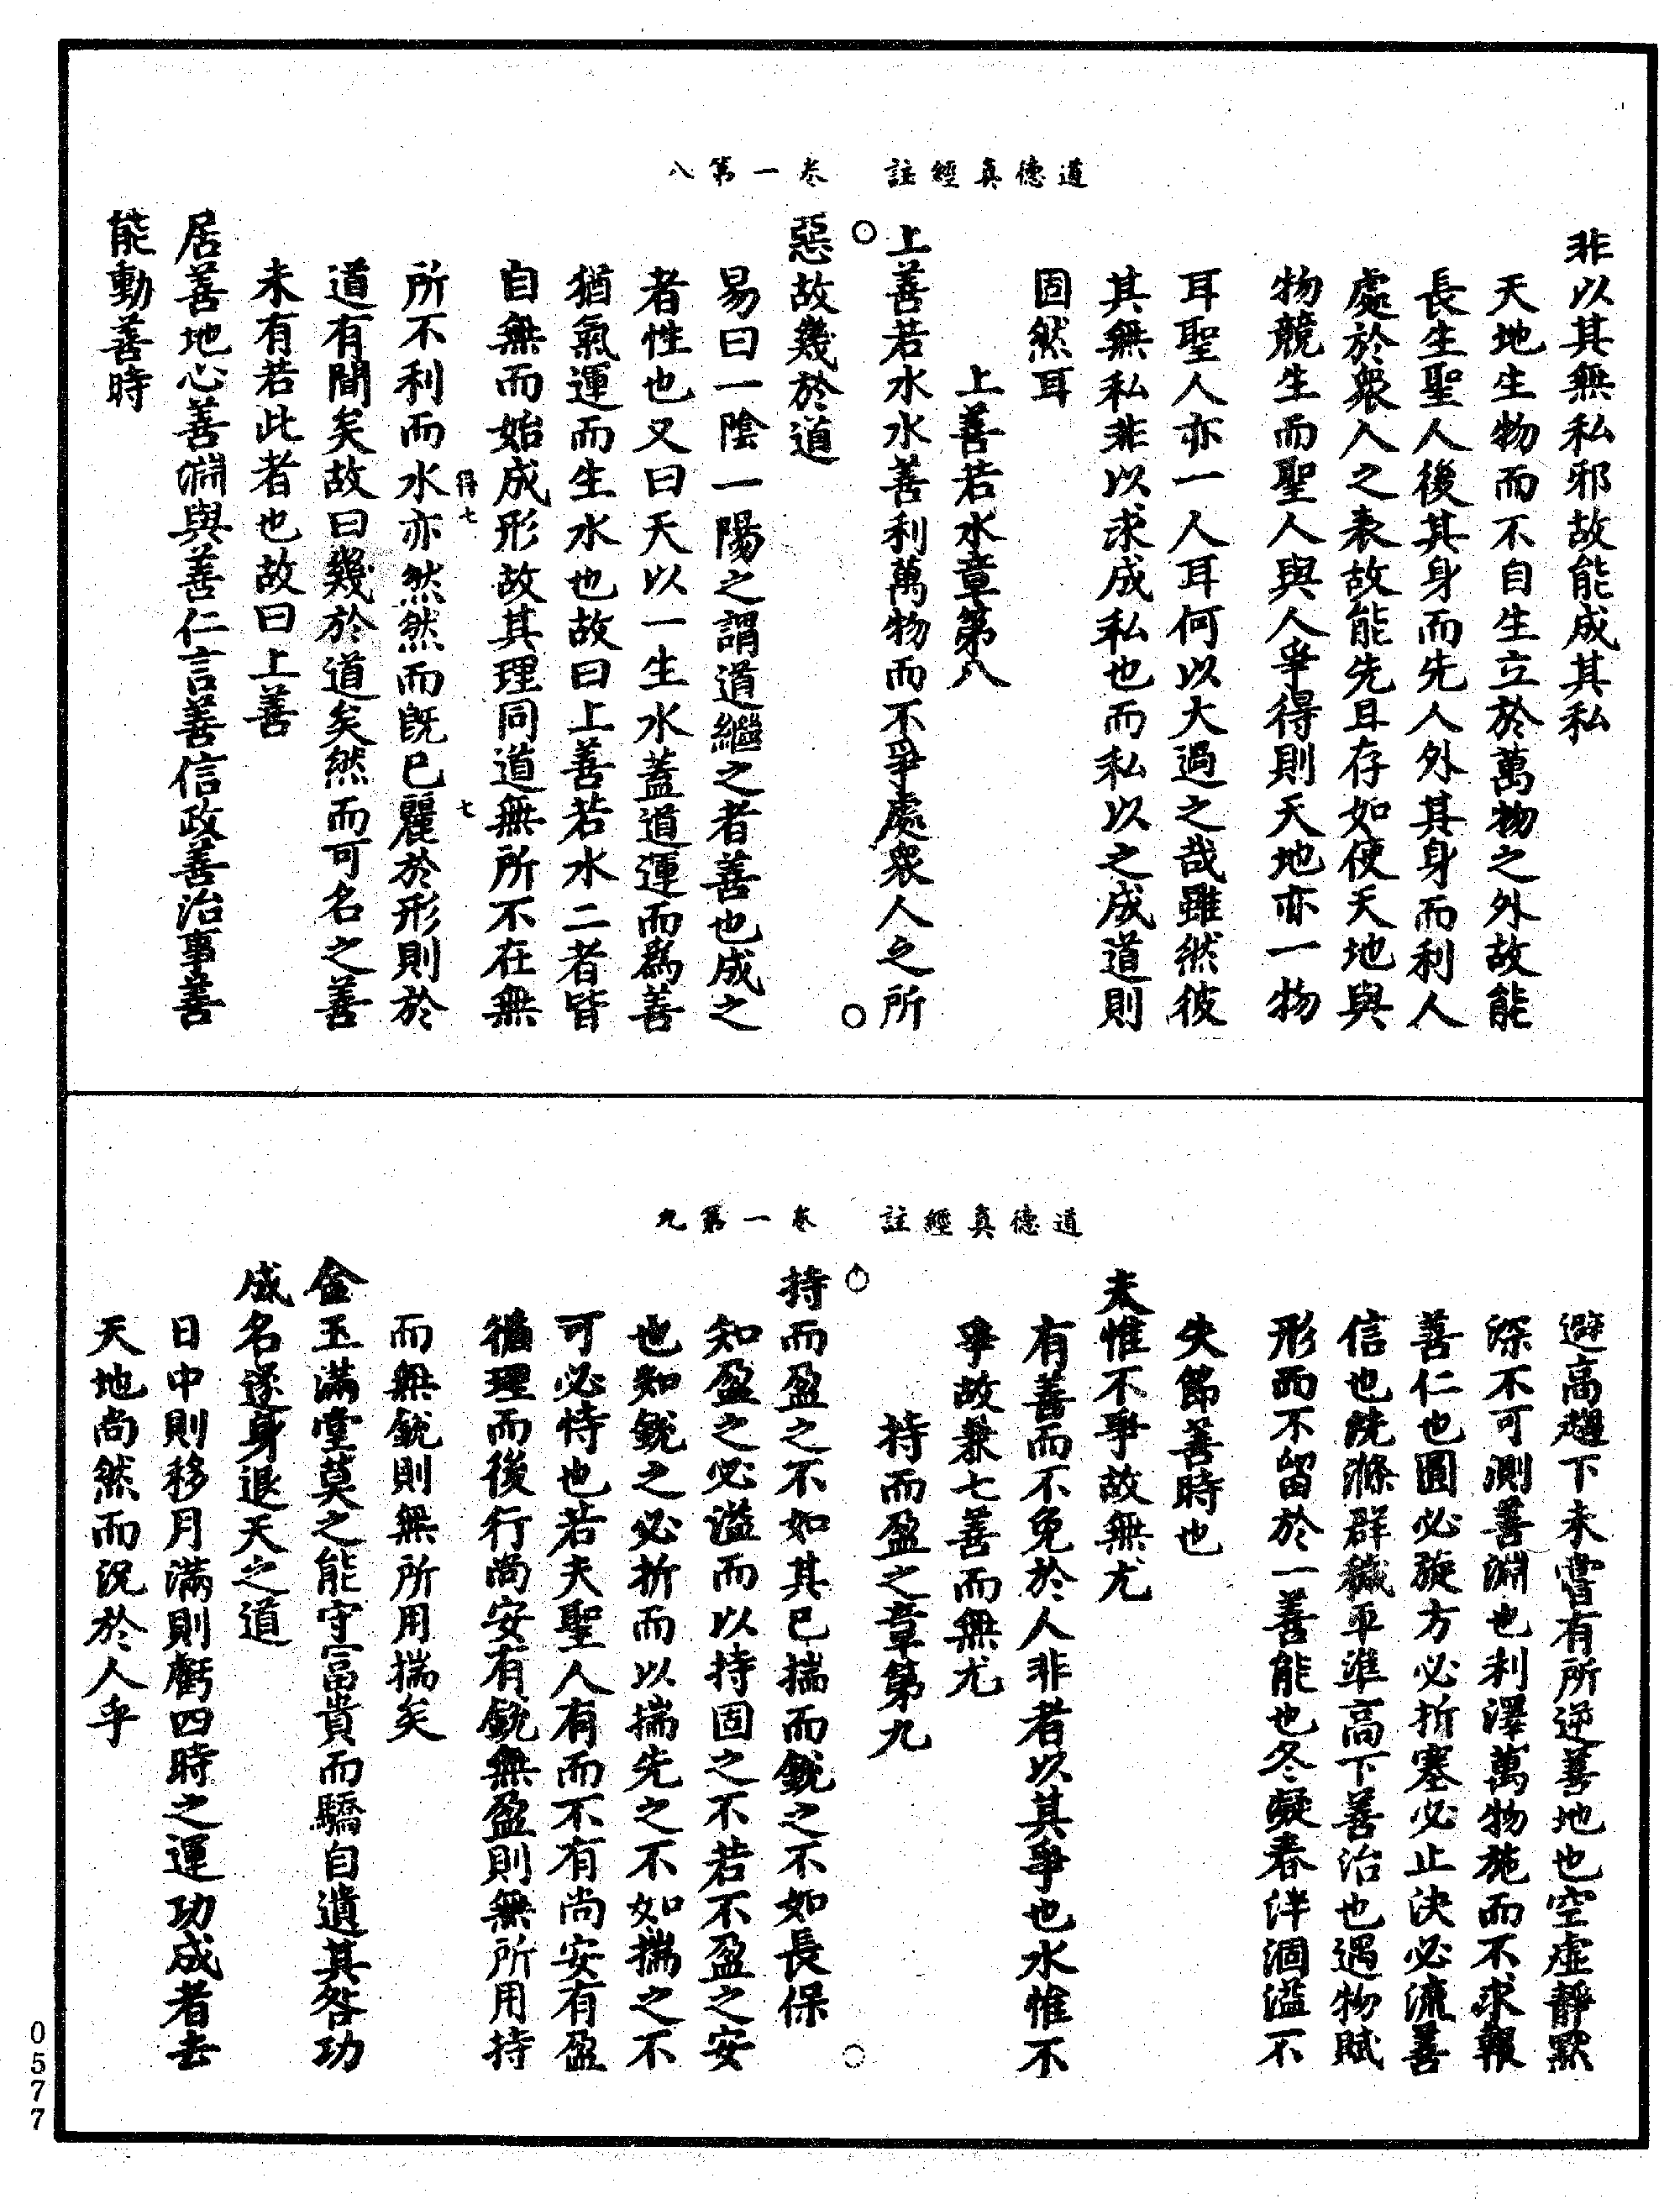 道德真經註　卷一第八
非以其無私邪故能成其私
天地生物而不自生立於萬物之外故能
長生聖人後其身而先人外其身而利人
處於衆人之表故能先且存如使天地與
物競生而聖人與人爭得則天地亦一物
耳聖人亦一人耳何以大過之哉雖然彼
其無私非以求成私也而私以之成道則
固然耳
上善若水章第八
上善若水水善利萬物而不爭處衆人之所
惡故幾於道
易曰一陰一陽之謂道繼之者善也成之
者性也又曰天以一生水蓋道運而爲善
猶氣運而生水也故曰上善若水二者皆
自無而始成形故其理同道無所不在無
得七　七
所不利而水亦然然而旣已麗於形則於
道有間矣故曰幾於道矣然而可名之善
未有若此者也故曰上善
居善地心善淵與善仁言善信政善治事善
能動善時
道德真經註　卷一第九
避高趨下未嘗有所逆善地也空虛靜默
深不可測善淵也利澤萬物施而不求報
善仁也圓必旋方必折塞必止決必流善
信也洗滌群穢平準高下善治也遇物賦
形而不留於一善能也冬凝春泮涸溢不
失節善時也
夫惟不爭故無尤
有善而不免於人非者以其爭也水惟不
爭故兼七善而無尤
持而盈之章第九
持而盈之不如其已揣而銳之不如長保
知盈之必溢而以持固之不若不盈之安
也知銳之必折而以揣先之不如揣之不
可必恃也若夫聖人有而不有尚安有盈
循理而後行尚安有銳無盈則無所用持
而無銳則無所用揣矣
金玉滿堂莫之能守富貴而驕自遺其咎功
成名遂身退天之道
日中則移月滿則虧四時之運功成者去
天地尚然而況於人乎
0577